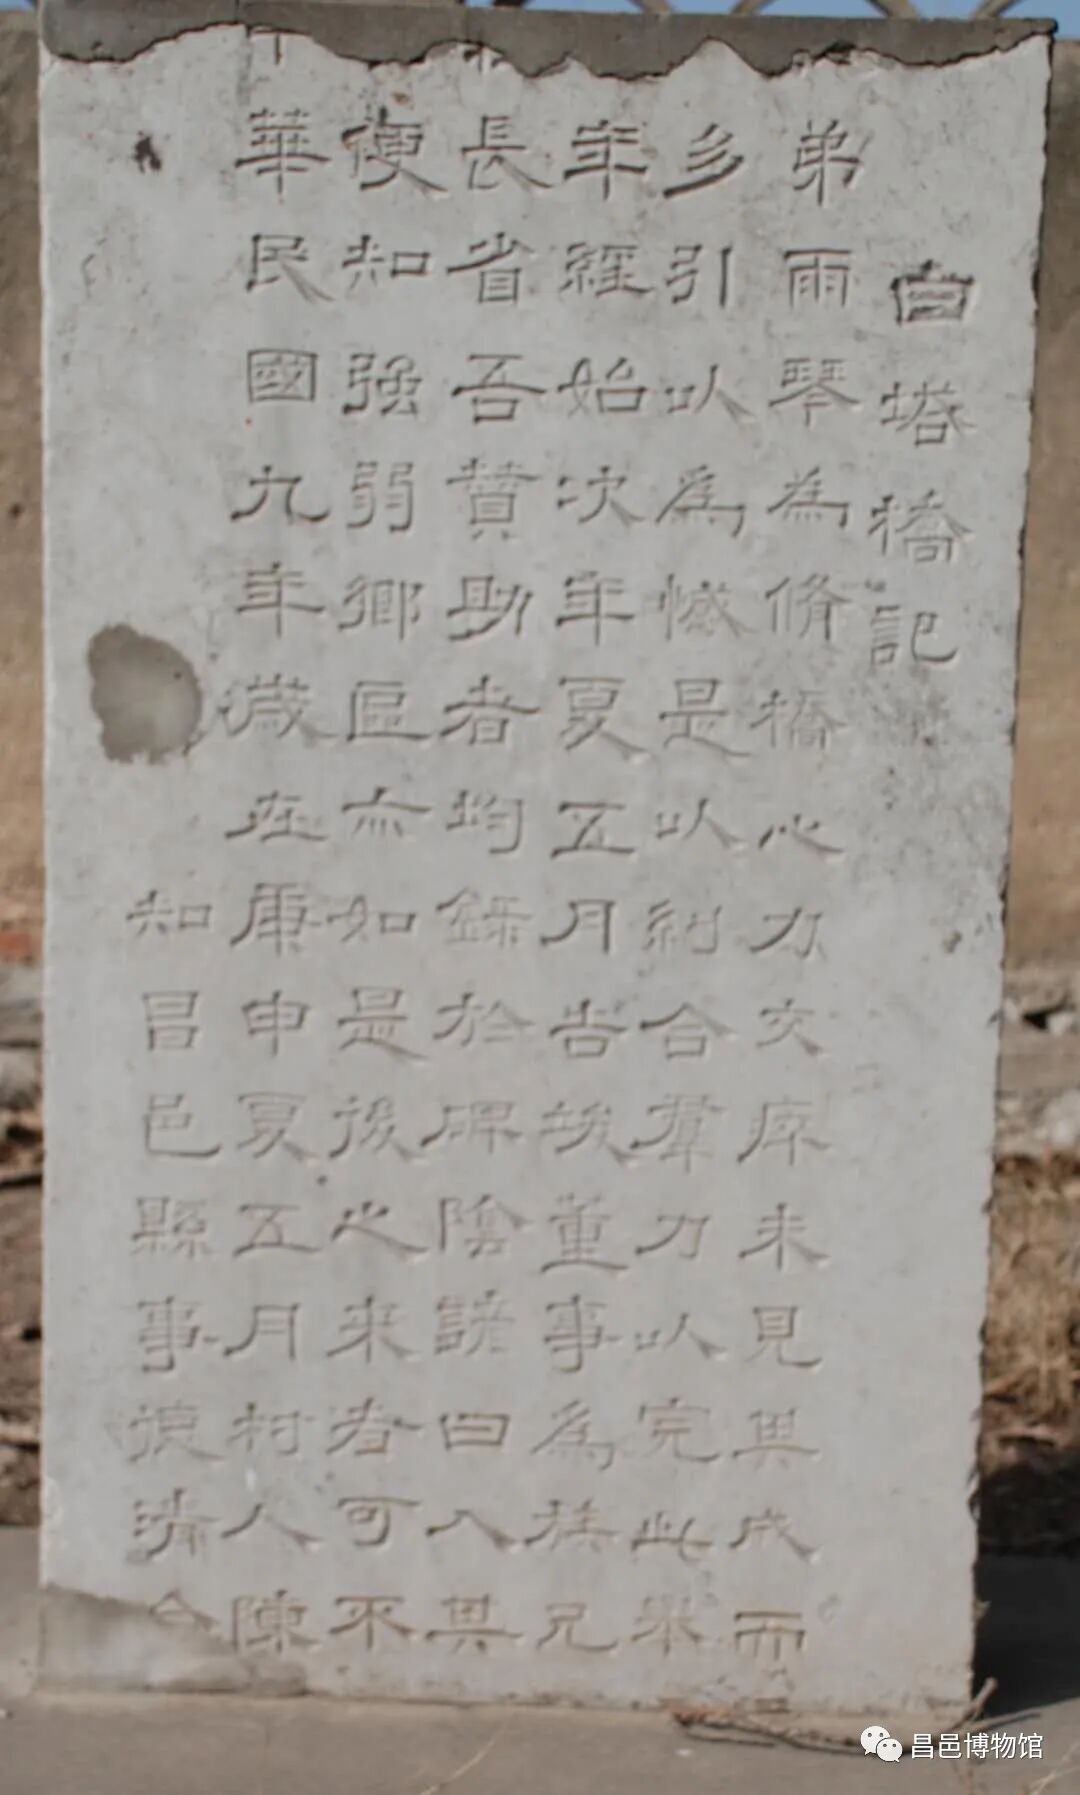 白塔橋記
弟雨琴為脩橋心力交瘁未見其成而
乡引以為憾是以糾合羣力以完此舉
年經始次年夏五月告竣董事為族兄
長省吾贊助者均錄於碑陰諺曰人畏
便知強弱鄉區亦如是後之来者可不
華民國九年歲在庚申夏五月村人陳
知昌邑縣事德清
昌邑博物馆